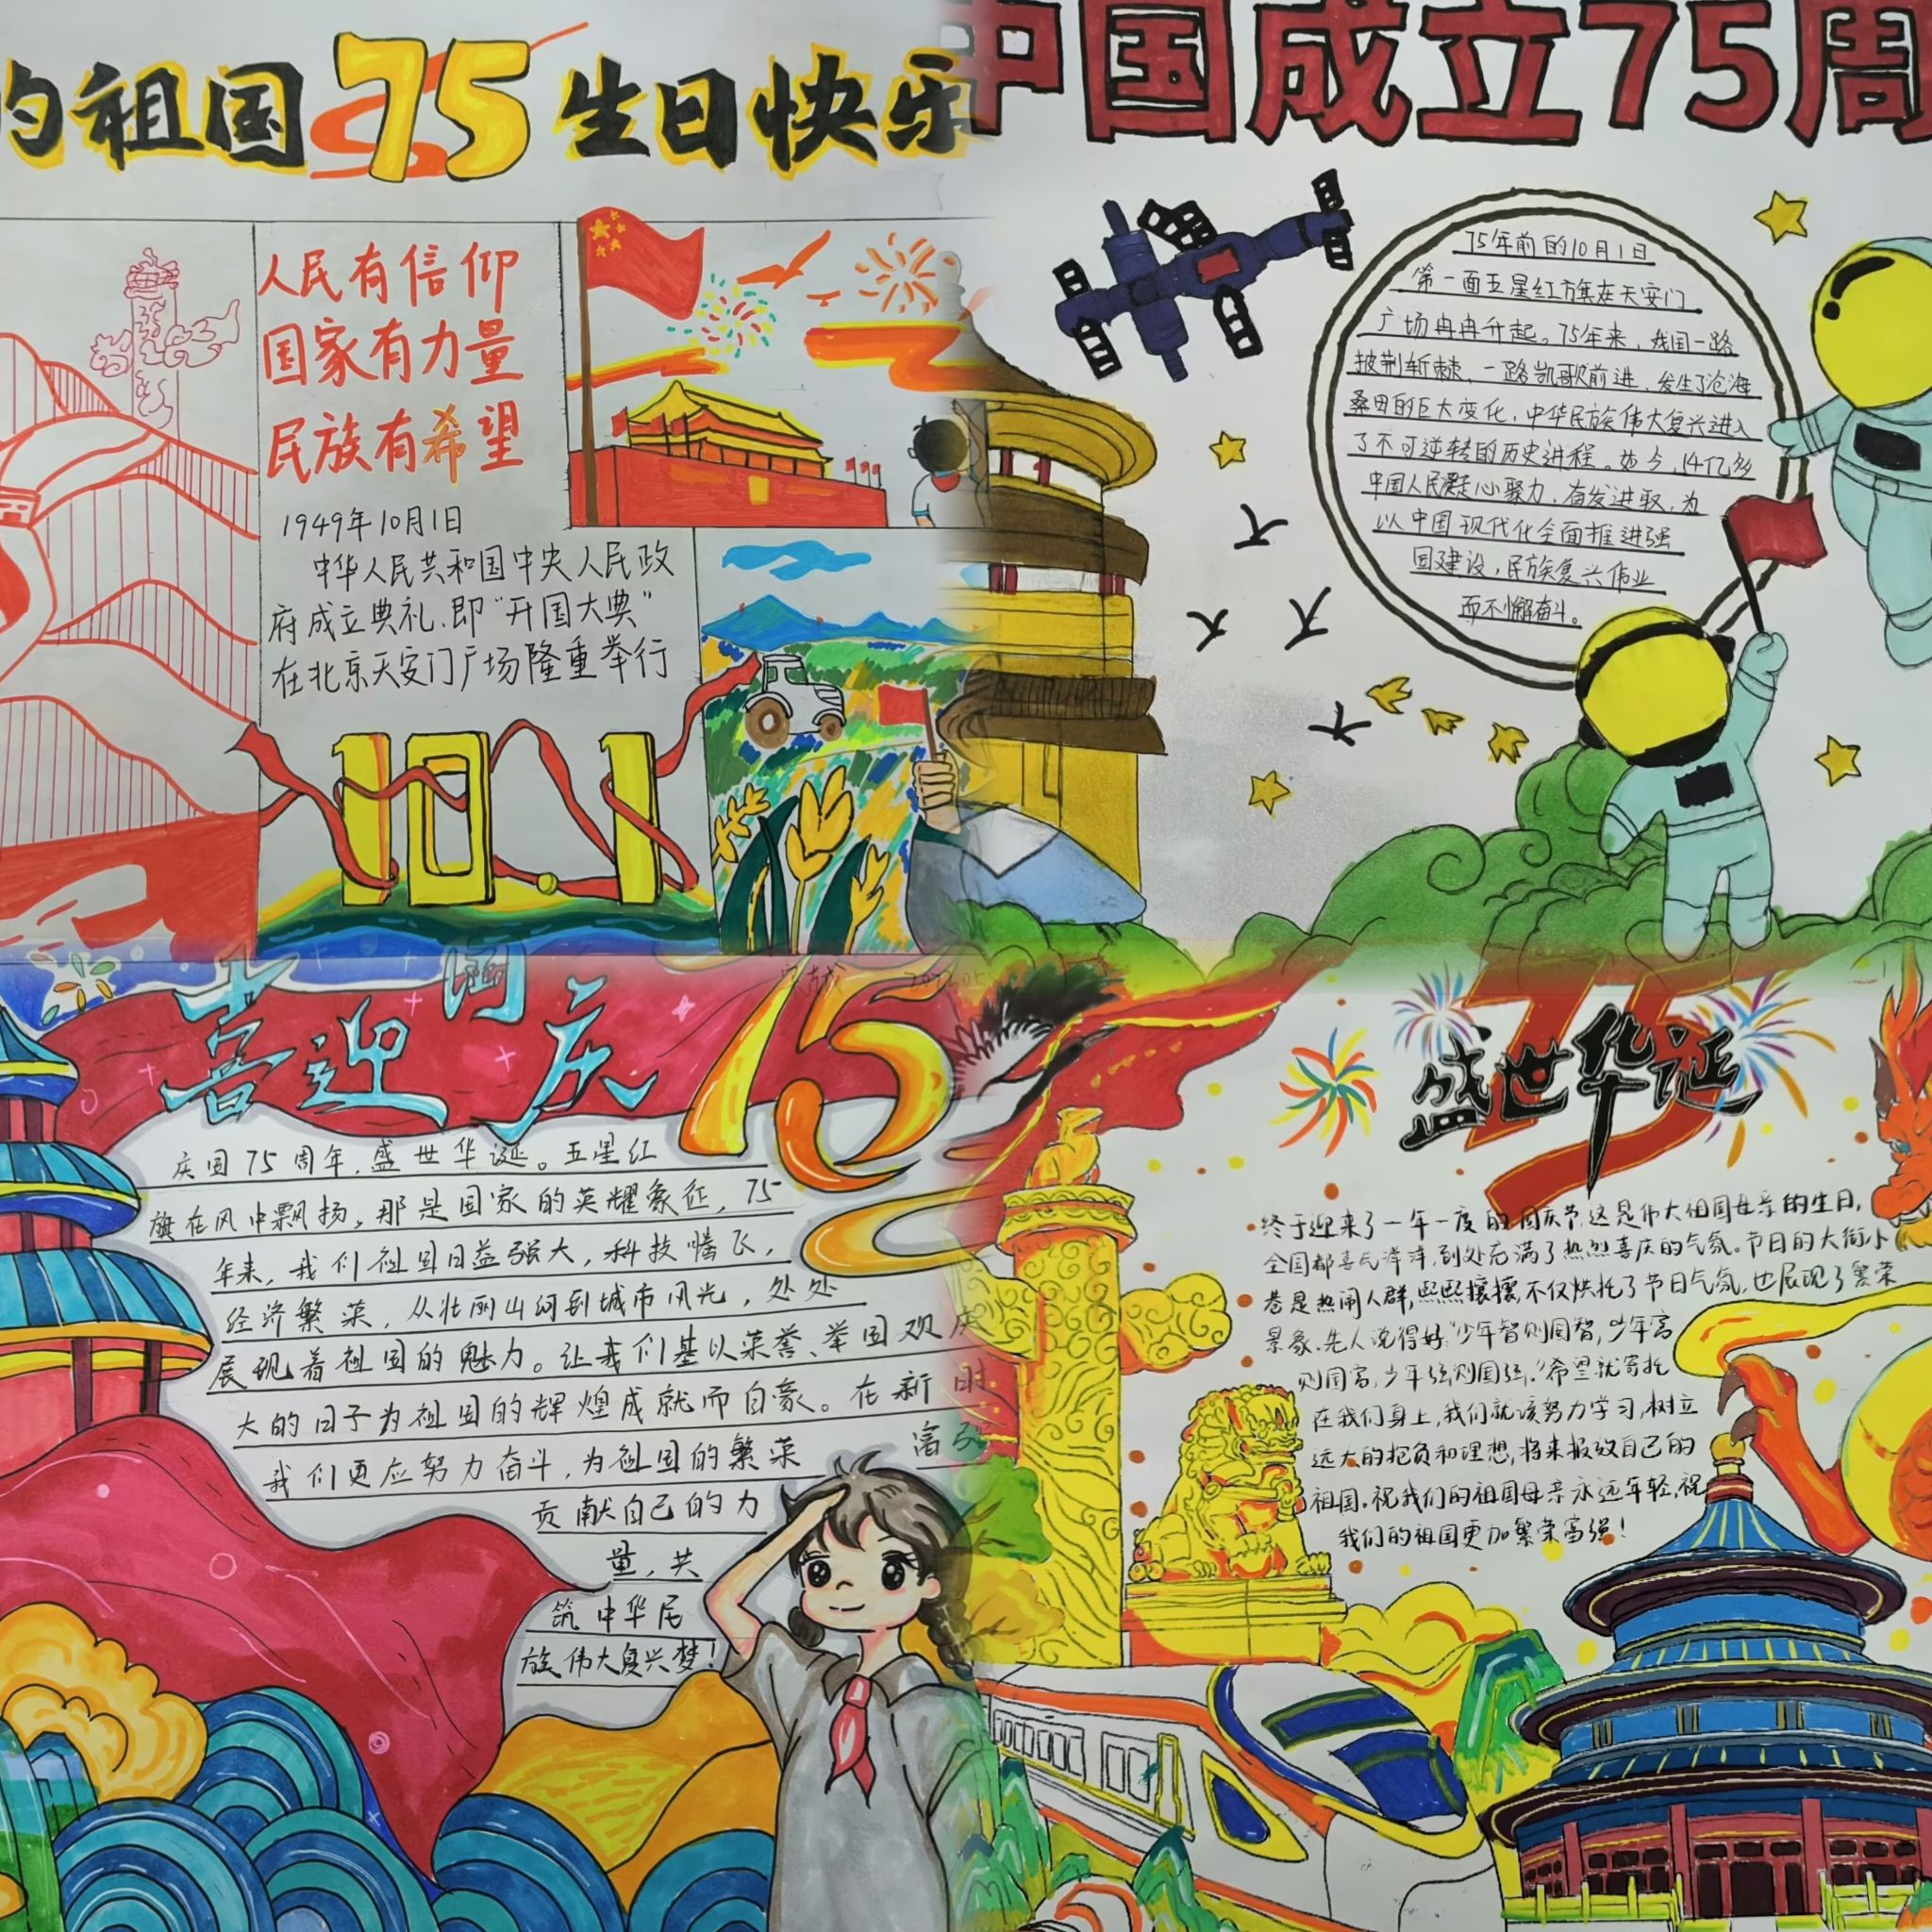 的祖国75生日快乐
人民有信仰
国家有力量
民族有希望
1949年10月1日
中华人民共和国中央人民政
府成立典礼,即“开国大典”
在北京天安门广场隆重举行
10 1
中国成立75周
75年前的10月1日
第一面五星红旗在天安门
广场冉冉升起。75年来,我国一路
披荆斩棘,一路凯歌前进,发生了沧海
桑田的巨大变化,中华民族伟大复兴进入
了不可逆转的历史进程。如今,14亿多
中国人民凝心聚力,奋发进取,为
以中国现代化全面推进强
国建设,民族复兴伟业
而不懈奋斗。
喜迎国庆75
庆国75周年,盛世华诞。五星红
旗在风中飘扬,那是国家的英耀象征,75
年来,我们祖国日益强大,科技腾飞,
经济繁荣,从壮丽山河到城市风光,处处
展现着祖国的魅力。让我们基以荣誉、举国欢庆
大的日子为祖国的辉煌成就而自豪。在新时
我们更应努力奋斗,为祖国的繁荣富强
贡献自己的力
量,共
筑中华民
族伟大复兴梦!
75
盛世华诞
终于迎来了一年一度的国庆节,这是伟大祖国母亲的生日,
全国都喜气洋洋,到处充满了热烈喜庆的气氛。节日的大街小
巷是热闹人群,熙熙攘攘,不仅烘托了节日气氛,也展现了繁荣
景象。先人说得好:“少年智则国智,少年富
则国富,少年强则国强。”希望就寄托
在我们身上,我们就该努力学习,树立
远大的抱负和理想,将来报效自己的
祖国。祝我们的祖国母亲永远年轻,祝
我们的祖国更加繁荣富强!